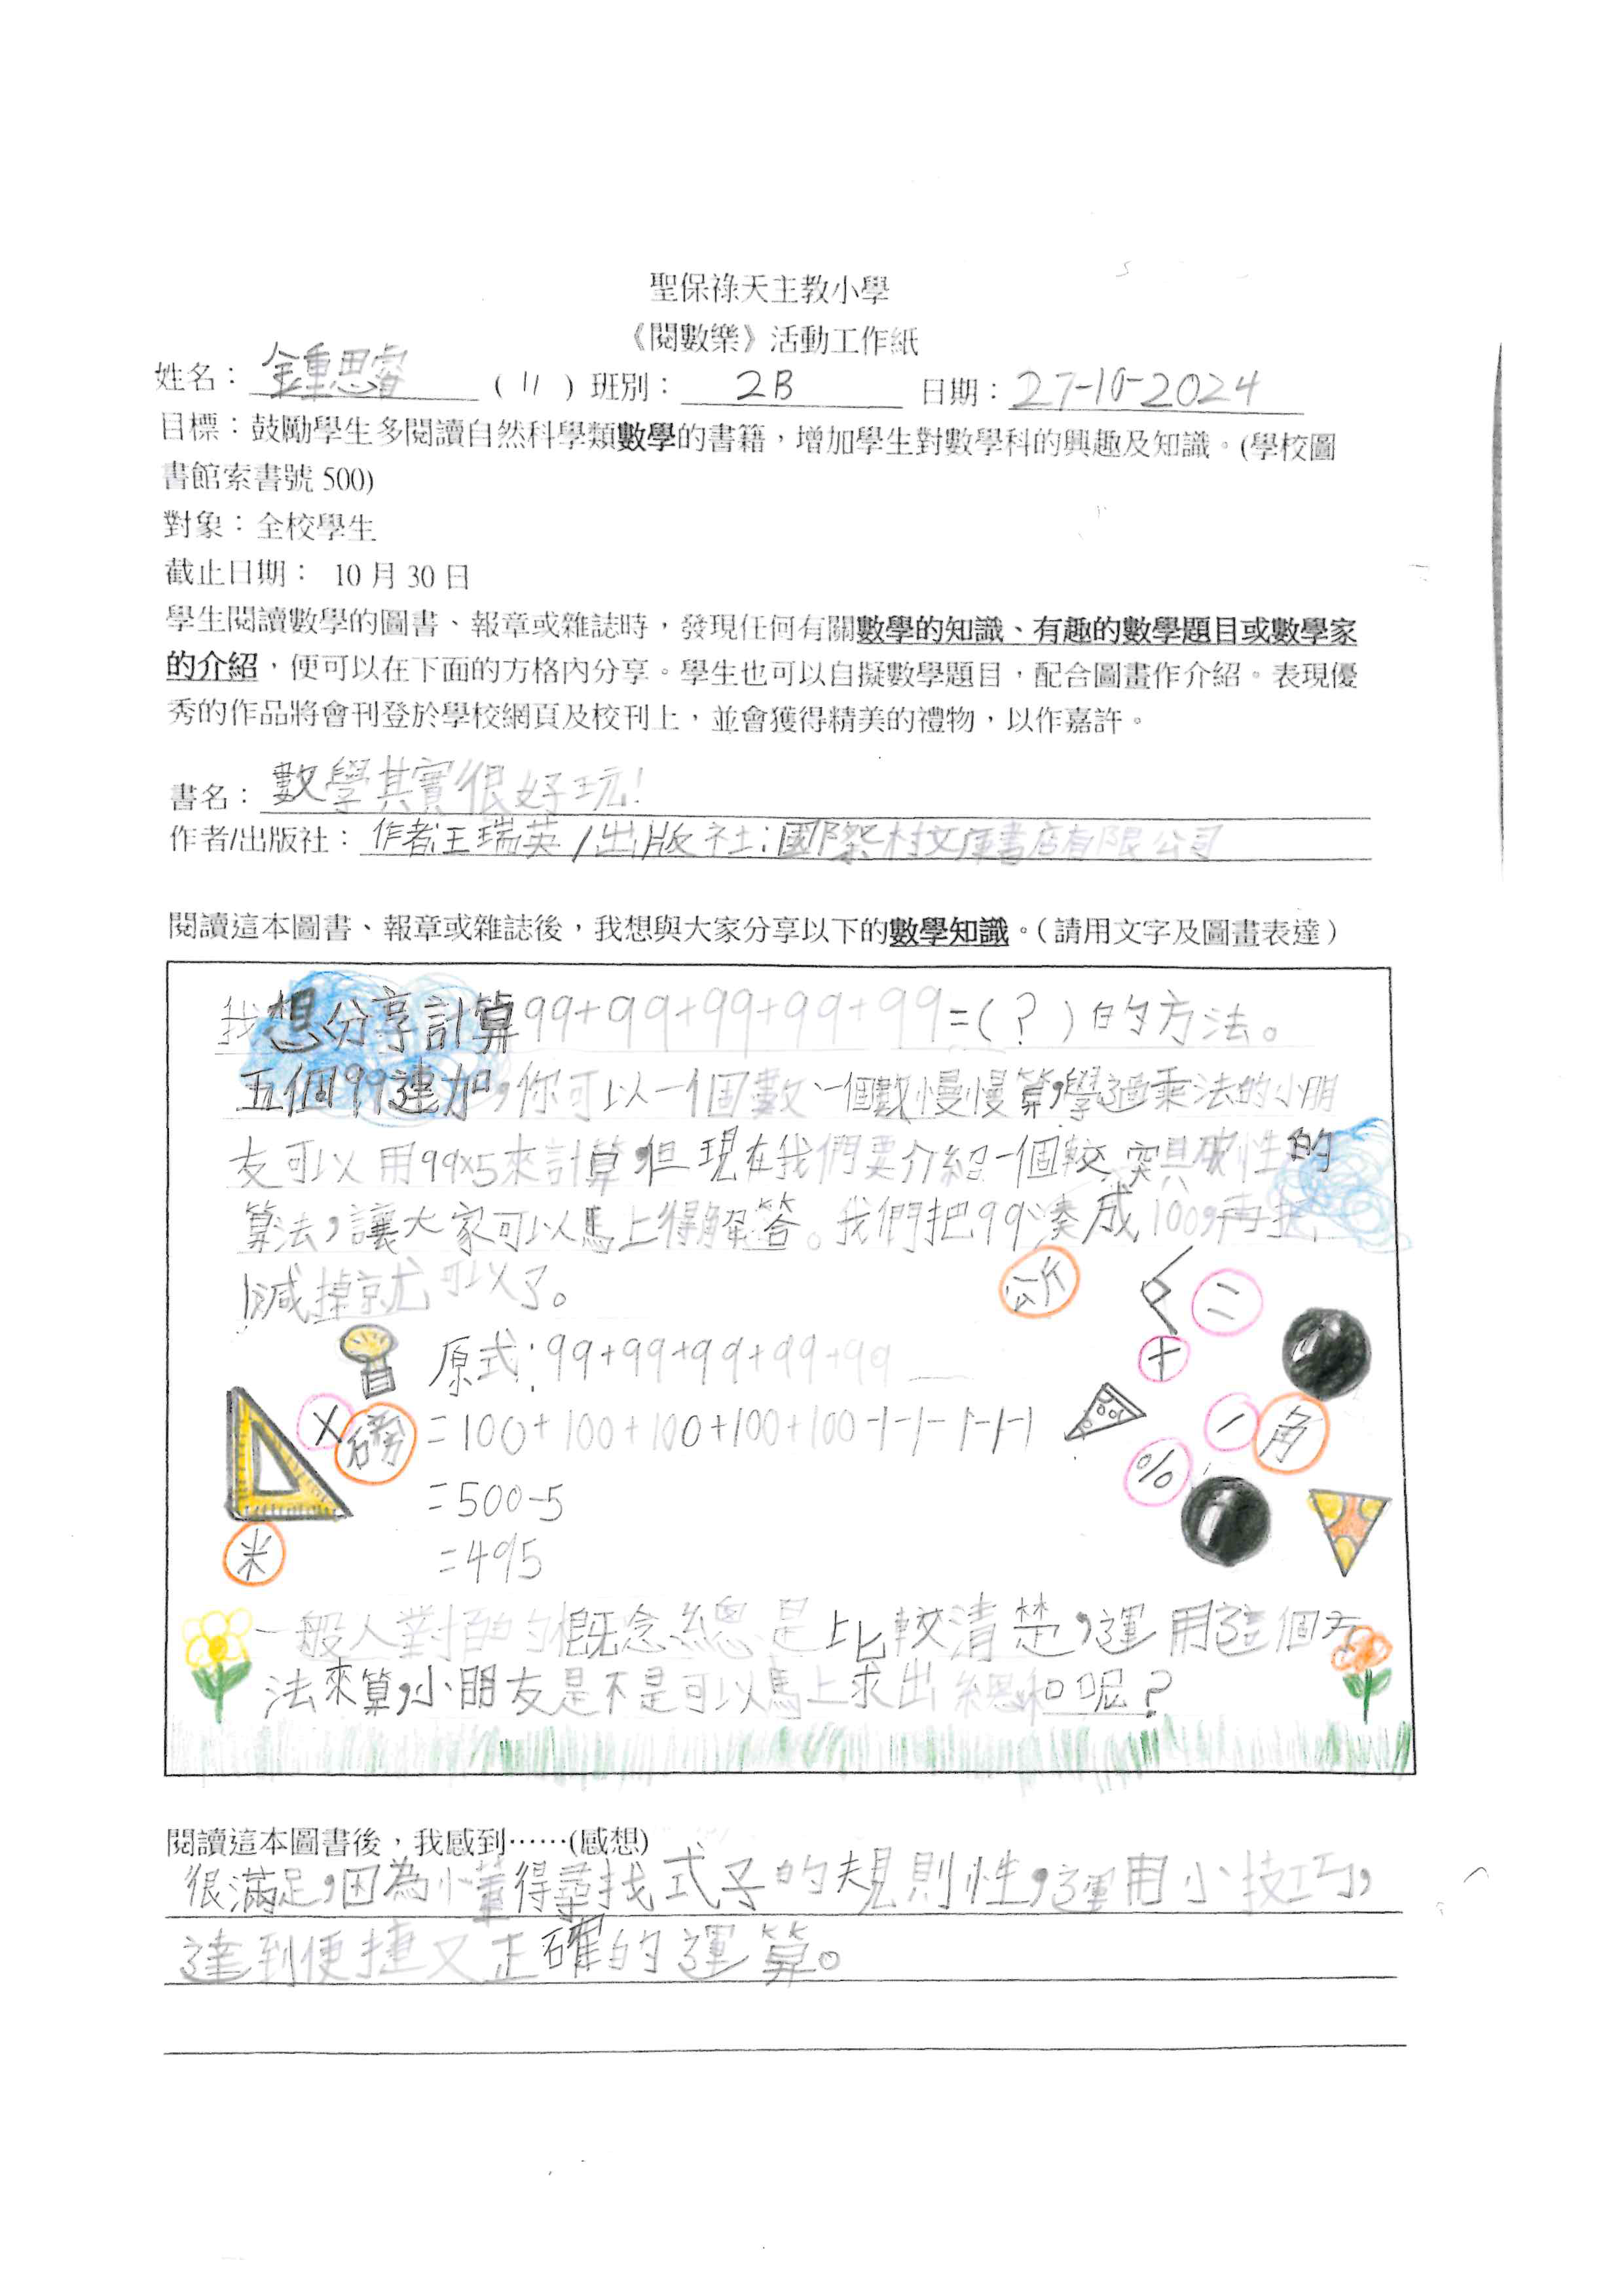 聖保祿天主教小學
《閱數樂》活動工作紙
姓名：鍾思睿（11）班別：2B 日期：27-10-2024
目標：鼓勵學生多閱讀自然科學類數學的書籍，增加學生對數學科的興趣及知識。(學校圖
書館索書號 500)
對象：全校學生
截止日期： 10 月 30 日
學生閱讀數學的圖書、報章或雜誌時，發現任何有關數學的知識、有趣的數學題目或數學家
的介紹，便可以在下面的方格內分享。學生也可以自擬數學題目，配合圖畫作介紹。表現優
秀的作品將會刊登於學校網頁及校刊上，並會獲得精美的禮物，以作嘉許。
書名：數學其實很好玩！
作者/出版社：作者:王瑞英/出版社:國際村文庫書店有限公司
閱讀這本圖書、報章或雜誌後，我想與大家分享以下的數學知識。（請用文字及圖畫表達）
我想分享計算99+99+99+99+99=(？)的方法。
五個99連加，你可以一個數一個數慢慢算，學過乘法的小朋
友可以用99×5來計算，但現在我們要介紹一個較突具破性的
算法，讓大家可以馬上得解答。我們把99湊成100，再把
1減掉就可以了。
公斤
<
=
+
原式：99+99+99+99+99
×
磅
=100+100+100+100+100-1-1-1-1-1
-
角
%
=500-5
米
=495
一般人對百的概念總是比較清楚，運用這個方
法來算，小朋友是不是可以馬上求出總和呢？
閱讀這本圖書後，我感到……(感想)
很滿足，因為懂得尋找式子的規則性，運用小技巧，
達到便捷又正確的運算。